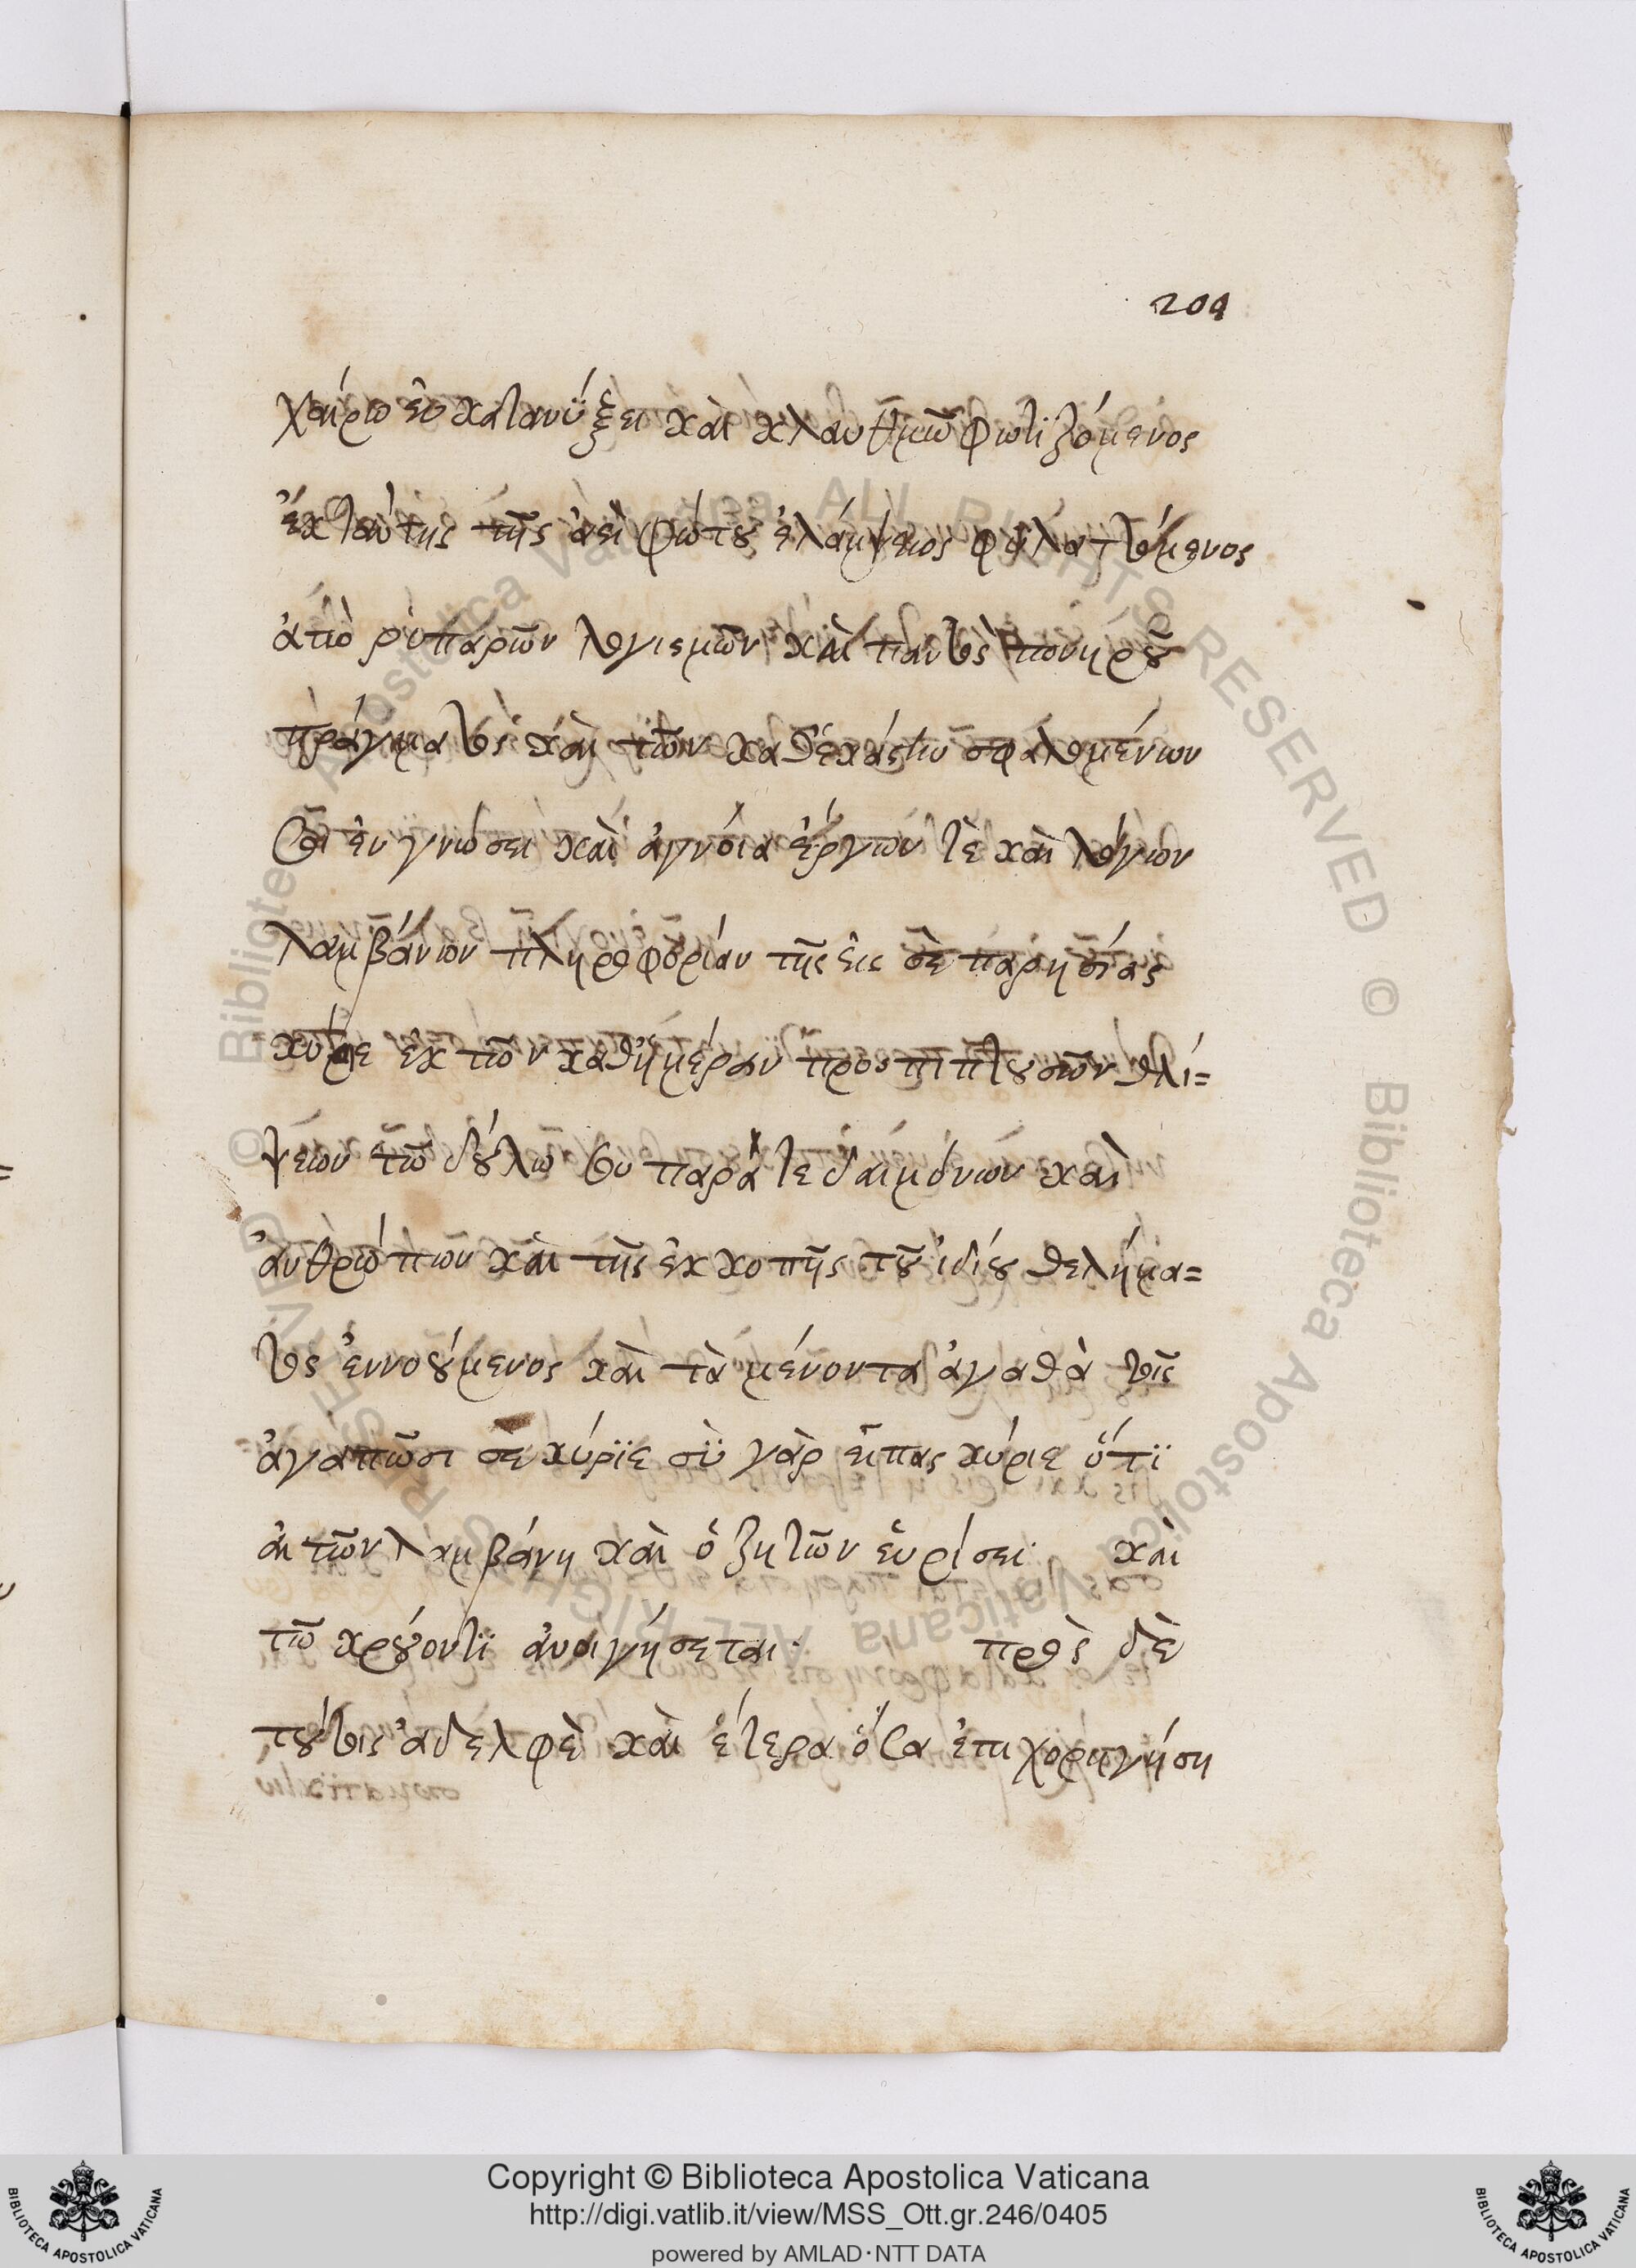 209
χαίρω ἐν κατανύξει καὶ κλαυθμῶ φωτιζόμενος
ἐκ ταύτης τῆς ἀεὶ φώτου ἐλάμψεως φυλαττόμενος
ἀπὸ ρυπαρῶν λογισμῶν καὶ παντὸς πονηροῦ
πράγματος καὶ τῶν καθεκάστην σφαλομένων
μοι ἐν γνώσει καὶ ἀγνοία ἔργων τὲ καὶ λόγων
λαμβάνων πληροφορίαν τῆς εἰς σὲ παρησίας
κύριε ἐκ τῶν καθημέραν προσπιπτουσῶν θλί=
ψεων τῶ δούλω σου παρά τε δαιμόνων καὶ
ἀνθρώπων καὶ τῆς ἐκκοπῆς τοῦ ἰδίου θελήμα=
τος ἐννοούμενος καὶ τὰ μένοντα ἀγαθὰ τοῖς
ἀγαπῶσι σε κύριε σὺ γὰρ εἶπας κύριε ὅτι
αἰτῶν λαμβάνη καὶ ὁ ζητῶν εὑρίσει· καὶ
τῶ κρούοντι ἀνοιγήσεται· πρὸς δὲ
τούτοις ἀδελφὲ καὶ ἕτερα ὅσα ἐπιχορηγήση
Copyright © Biblioteca Apostolica Vaticana
http://digi.vatlib.it/view/MSS_Ott.gr.246/0405
powered by AMLAD·NTT DATA
BIBLIOTECA APOSTOLICA VATICANA
BIBLIOTECA APOSTOLICA VATICANA